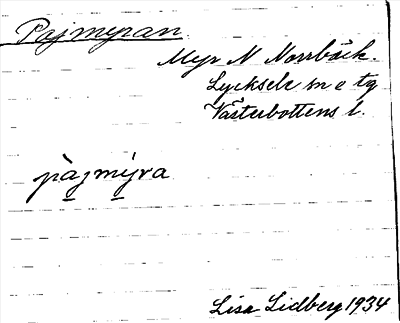 Pajmyran.
Myr N Norrbäck.
Lycksele sn o tg
Västerbottens l.
pàjmýra
Lisa Lidberg 1934